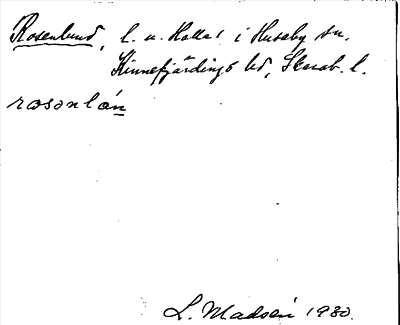 Rosenlund, l. u. Hallas i Husaby sn.
Kinnefjärdings hd, Skarab. l.
rosənlán
L. Madsén 1930.